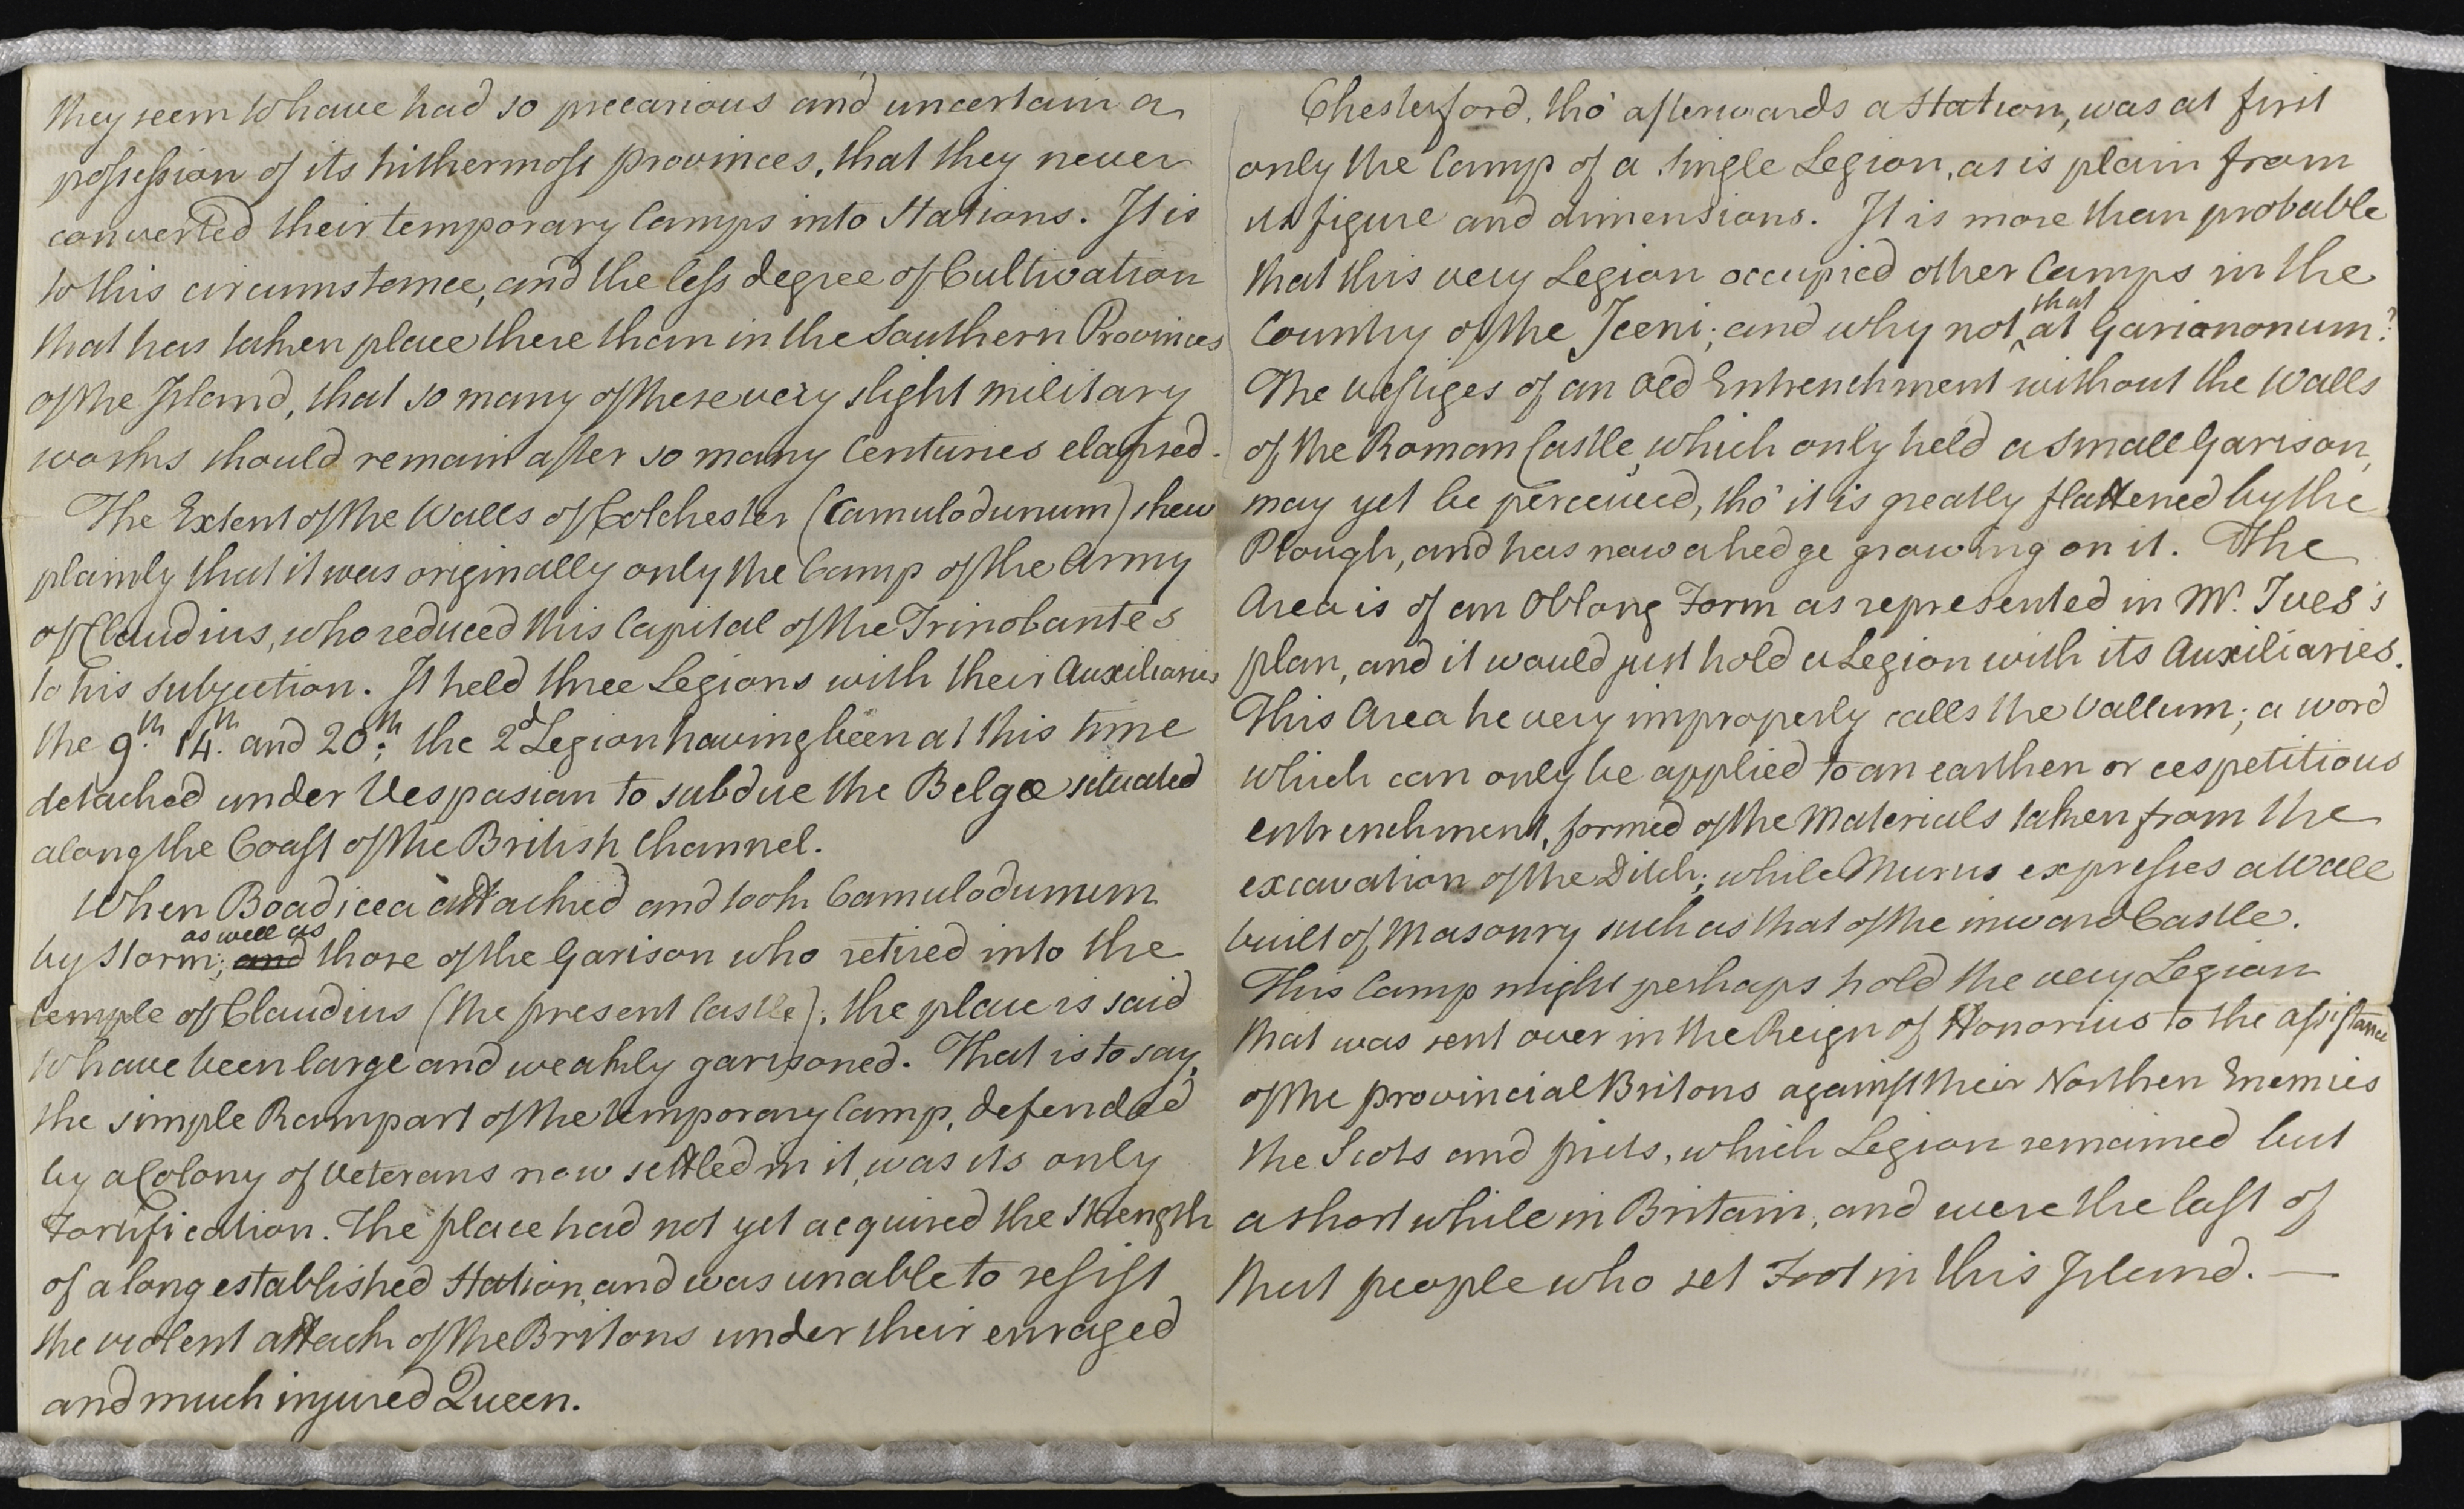 they seem to have had so precarious and uncertain a
possession of its hithermost provinces, that they never
converted their temporary Camps into Stations. It is
to this circumstance, and the less degree of Cultivation
that has taken place there than in the Southern Provinces
of the Island, that so many of these very slight military
works should remain after so many Centuries elapsed.
The Extent of the Walls of Colchester (Camulodunum) shew
plainly that it was originally only the Camp of the Army
of Claudius, who reduced this Capital of the Trinobantes
to his subjection. It held three Legions with their Auxiliaries
the 9th. 14th. and 20th; the 2d Legion having been at this time
detached under Vespasian to subdue the Belgæ situated
along the Coast of the British Channel.
When Boadicea attacked and took Camulodunum
by Storm; as well as and those of the Garison who retired into the
temple of Claudius (the present Castle), the place is said
to have been large and weakly garisoned. That is to say,
the simple Rampart of the temporary Camp, defended
by a Colony of Veterans now settled in it, was its only
Fortification. The place had not yet acquired the Strength
of a long established Station, and was unable to resist
the violent attack of the Britons under their enraged
and much injured Queen.
Chesterford, tho' afterwards a Station, was at first
only the Camp of a single Legion, as is plain from
its figure and dimensions. It is more than probable
that this very Legion occupied other Camps in the
Country of the Iceni; and why not that at Garianonum?
The vestiges of an old Entrenchment without the Walls
of the Roman Castle, which only held a small Garison,
may yet be perceived, tho' it is greatly flattened by the
Plough, and has now a hedge growing on it. The
Area is of an Oblong Form as represented in Mr. Ives's
plan, and it would just hold a Legion with its Auxiliaries.
This Area he very improperly calls the Vallum; a word
which can only be applied to an earthen or cespetitious
entrenchment, formed of the Materials taken from the
excavation of the Ditch; while Murus expresses a Wall
built of Masonry such as that of the inward Castle.
This Camp might perhaps hold the very Legion
that was sent over in the Reign of Honorius to the assistance
of the provincial Britons against their Northen Enemies
the Scots and picts, which Legion remained but
a short while in Britain, and were the last of
that people who set Foot in this Island. —